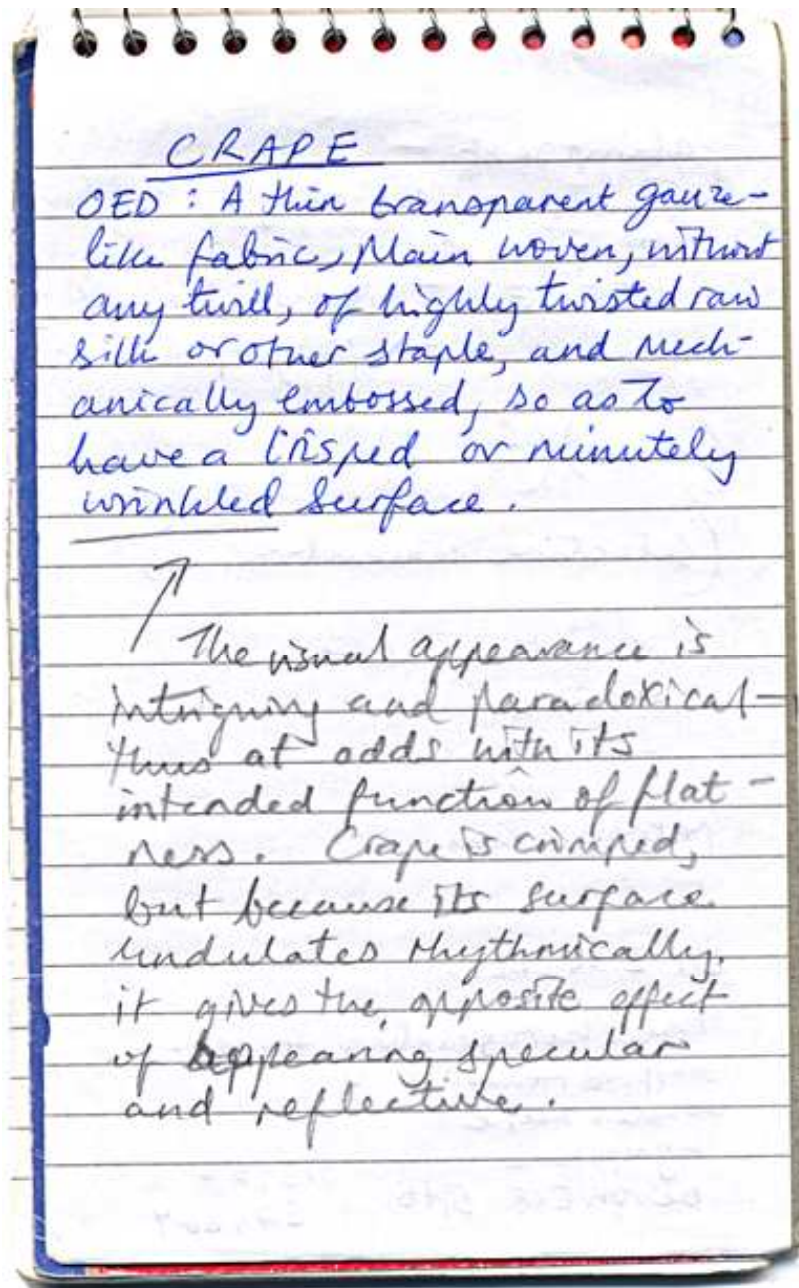 CRAPE
OED : A thin transparent gauze-
like fabric, plain woven, without
any twill, of highly twisted raw
silk or other staple, and mech-
anically embossed, so as to
have a crisped or minutely
wrinkled surface.
The visual appearance is
intriguing and paradoxical -
thus at odds with its
intended function of flat-
ness. Crape is crimped,
but because its surface
undulates rhythmically,
it gives the opposite effect
of appearing specular
and reflective.